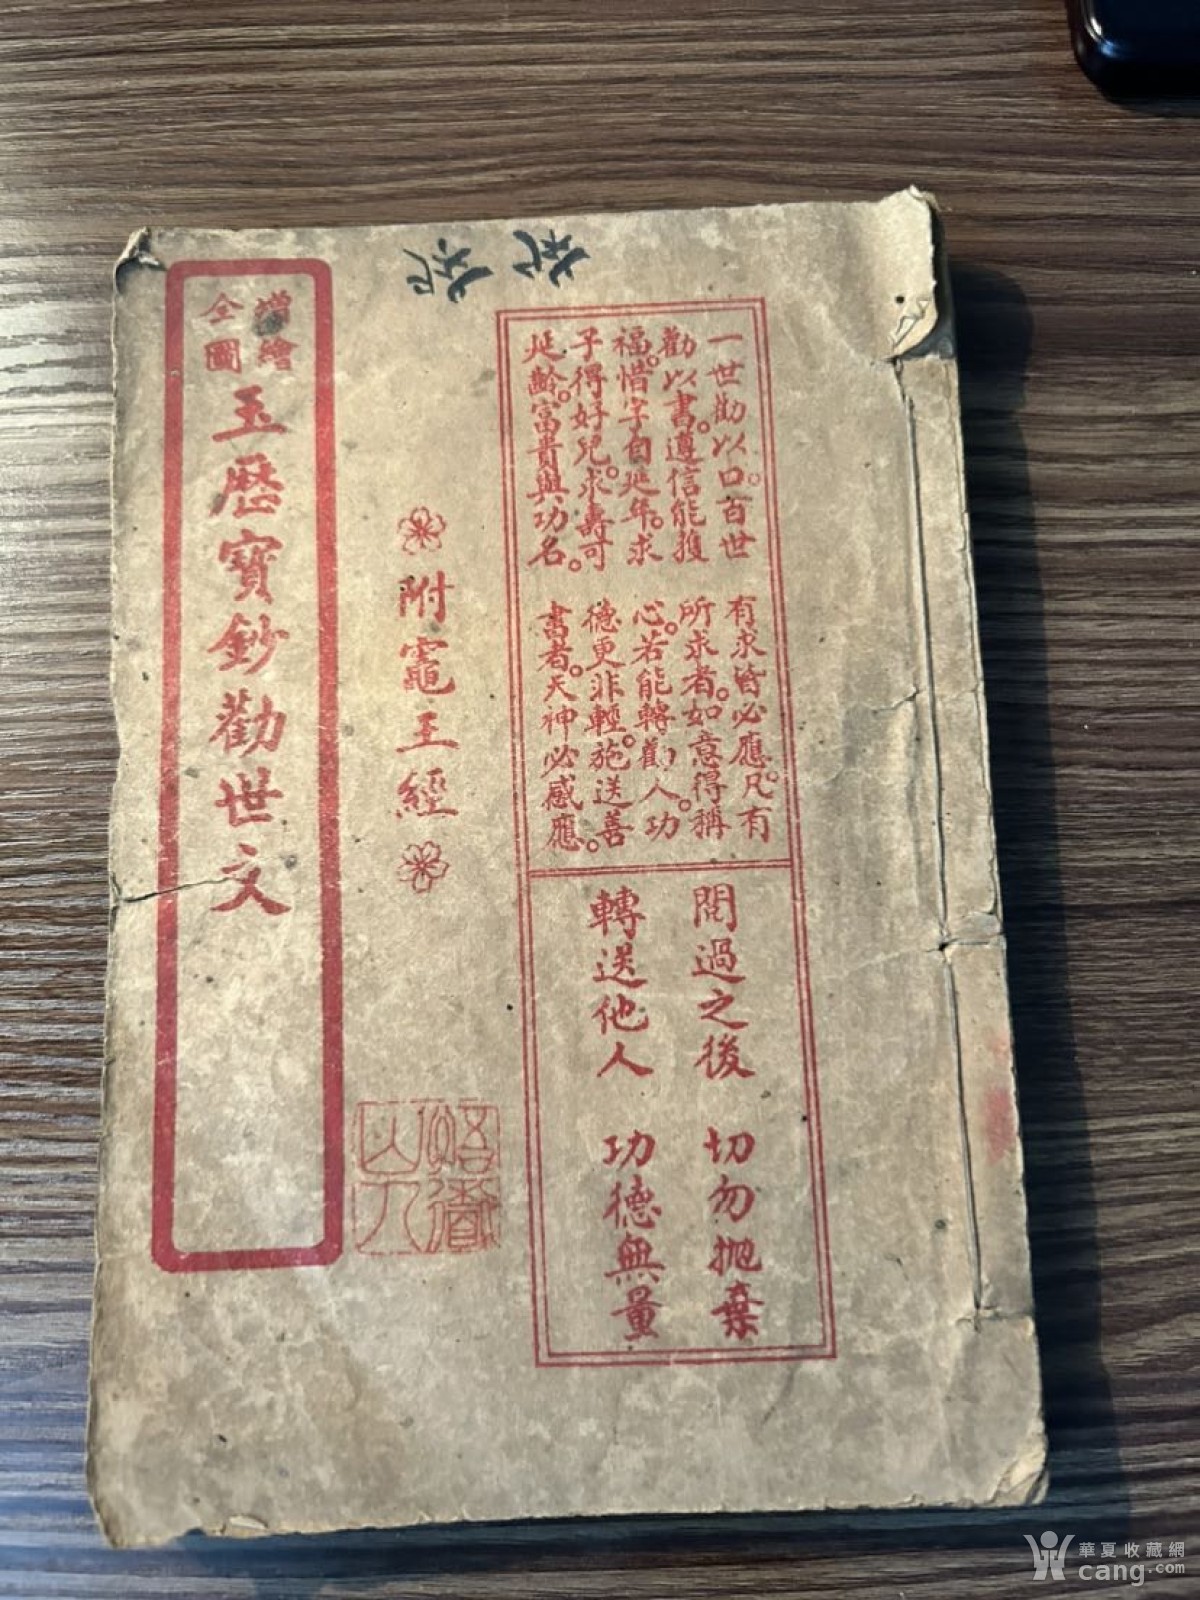 一世勸以口。百世
勸以書。遵信能獲
福。惜字自延年。求
子得好兒。求壽可
延齡。富貴與功名。
有求皆必應。凡有
所求者。如意得稱
心。若能轉勸人。功
德更非輕。施送善
書者。天神必感應。
閱過之後 切勿抛棄
轉送他人 功德無量
附竈王經
增繪
全圖
玉歷寶鈔勸世文
華夏收藏網
cang.com